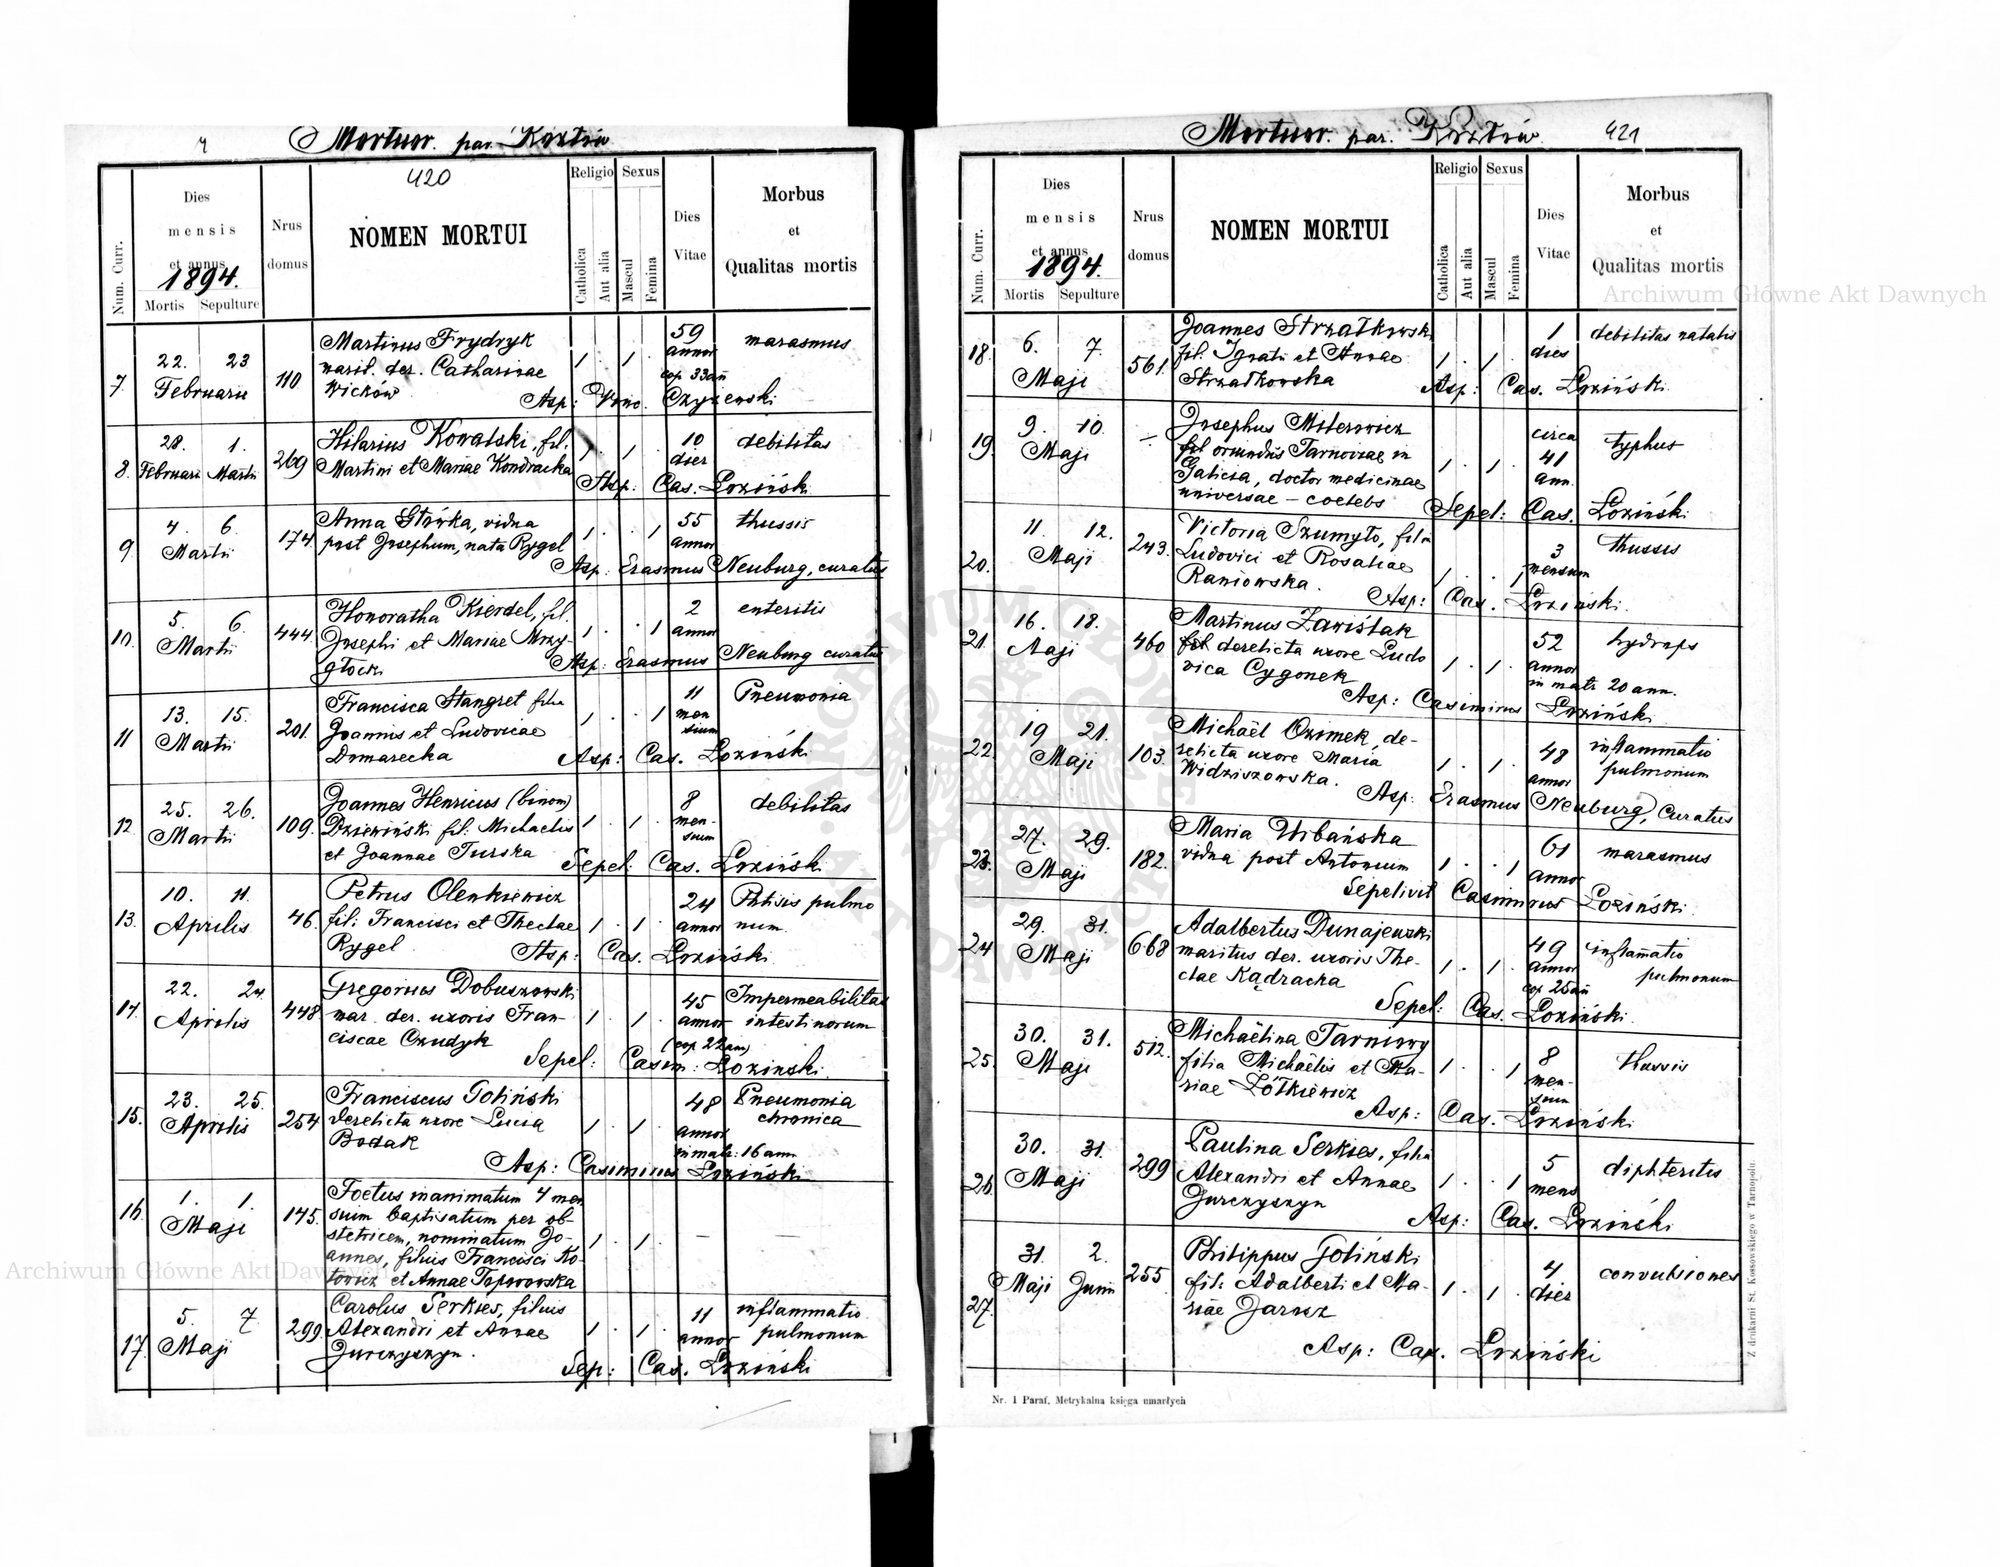 4 Mortuor. par. Kozłów
420
Num. Curr.
Dies mensis et annus
1894.
Mortis Sepulture
Nrus domus
NOMEN MORTUI
Religio
Catholica
Aut alia
Sexus
Mascul
Femina
Dies Vitae
Morbus et Qualitas mortis
7. 22. 23 Februarii 110 Martinus Frydryk 59 annor marasmus
marit. der. Catharinae 1 . 1 . cop 33 an
Wicków Asp: Czyżewski
8. 28. 1. Februarii Martii 269 Hilarius Kowalski, fil. 10 dier debilitas
Martini et Mariae Kondracka 1 . 1 .
Asp: Cas. Łoziński
9. 4. 6. Martii 174. Anna Stówka, vidua 55 annor thussis
post Josephum, nata Rygel 1 . . 1
Asp: Erasmus Neuburg, curatus
10. 5. 6. Martii 444. Honoratha Kierdel, fil. 2 annor enteritis
Josephi et Mariae Mrzy- 1 . . 1
głocki Asp: Erasmus Neuburg curatus
11 13. 15. Martii 201. Francisca Stangret filia 11 mensium Pneumonia
Joannis et Ludovicae 1 . . 1
Domarecka Asp: Cas. Łoziński
12. 25. 26. Martii 109. Joannes Henricus (binom) 8 mensium debilitas
Dziewiński fil: Michaelis 1 . 1 .
et Joannae Turska Sepel: Cas. Łoziński
13. 10. 11. Aprilis 46. Petrus Olenkiewicz 24 annor Phtisis pulmonum
fil: Francisci et Theclae 1 . 1 .
Rygel Asp: Cas. Łoziński
14. 22. 24. Aprilis 448 Gregorius Dobuszowski 45 annor Impermeabilitas intestinorum
mar. der. uxoris Fran- 1 . 1 .
ciscae Czudyk (cop 22 an)
Sepel: Casim: Łozinski.
15. 23. 25. Aprilis 254 Franciscus Goliński 48 annor Pneumonia chronica
derelicta uxore Lucia 1 . 1 .
Bodak in matr: 16 ann
Asp: Casimirus Łoziński
16. 1. 1. Maji 145. Foetus inanimatum 4 men
sium baptisatum per ob-
stetricem, nominatum Jo- 1 . 1 . — —
annes, filius Francisci Ko-
towicz et Annae Toporowska
17. 5. 7. Maji 299. Carolus Serkies, filius 11 annor inflammatio pulmonum
Alexandri et Annae 1 . 1 .
Jurczyszyn. Sep: Cas. Łoziński
Mortuor. par. Kozłów. 421
Num. Curr.
Dies mensis et annus
1894.
Mortis Sepulture
Nrus domus
NOMEN MORTUI
Religio
Catholica
Aut alia
Sexus
Mascul
Femina
Dies Vitae
Morbus et Qualitas mortis
18. 6. 7. Maji 561. Joannes Strzałkowski 1 dies debilitas natalis
fil. Ignatii et Annae 1 . 1 .
Strzałkowska Asp: Cas. Łoziński.
19. 9. 10. Maji — Josephus Miterowicz circa 41 ann. typhus
fil oriundus Tarnoviae in
Galicia, doctor medicinae 1 . 1 .
universae – coelebs Sepel: Cas. Łoziński
20. 11. 12. Maji 243. Victoria Szumyło, filia 3 mensium thussis
Ludovici et Rosaliae 1 . . 1
Raniowska. Asp: Cas. Łoziński.
21. 16. 18. Maji 460 Martinus Zawiślak 52 annor hydrops
fil derelicta uxore Ludo 1 . 1 .
vica Cygonek in matr. 20 ann.
Asp: Casimirus Łoziński
22. 19 21. Maji 103. Michaël Ozimek, de- 48 annor inflammatio pulmonum
relicta uxore Maria 1 . 1 .
Widziszowska. Asp: Erasmus Neuburg, curatus
23. 27. 29. Maji 182. Maria Urbańska 61 annor marasmus
vidua post Antonium 1 . . 1
Sepelivit Casimirus Łoziński
24 29. 31. Maji 668 Adalbertus Dunajewski 49 annor inflamatio pulmonum
maritus der. uxoris The- 1 . 1 .
clae Kądracka cop 25 an
Sepel: Cas. Łoziński.
25. 30. 31. Maji 512. Michaëlina Tarnowy 8 mensium thussis
filia Michaëlis et Ma- 1 . . 1
riae Żółkiewicz Asp: Cas. Łoziński.
26. 30. 31. Maji 299 Paulina Serkies, filia 5 mens diphteritis
Alexandri et Annae 1 . . 1
Jurczyszyn Asp: Cas. Łoziński
27. 31. 2. Maji Junii 255 Philippus Goliński 4 dier convulsiones
fil: Adalberti et Ma- 1 . 1 .
riae Jarosz
Asp: Cas. Łoziński
Nr. 1 Paraf. Metrykalna księga umarłych
Z drukarni St. Kossowskiego w Tarnopolu.
Archiwum Główne Akt Dawnych
Archiwum Główne Akt Dawnych
ARCHIWUM GŁÓWNE AKT DAWNYCH